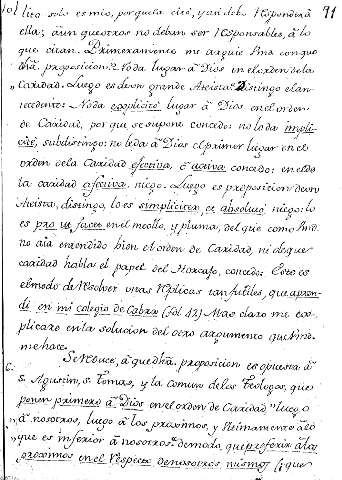 91
lico solo es mio, porque la cité, y así debo responder à
ella; aun que otros no deban ser responsables, à lo
que citan. Primeramente me arguie Pmd. conque
dha. proposicion: No da lugar à Dios en el orden de la
Caridad. Luego es de un grande Ateista. Distingo el an-
tecedente: No da explicite lugar à Dios en el orden
de Caridad, por que se supone concedo: no lo da impli-
cite, subdistingo: no le da à Dios el primer lugar en el
orden de la Caridad efectiva, è activa concedo: en el de
la caridad afectiva niego. Luego es proposicion de un
Ateista, distingo, lo es simpliciter, et absoluté niego: lo
es pro ut jacet en el meollo, y pluma, del que como Pmd.
no aia entendido bien el orden de Caridad, ni de que
caridad habla el papel del concedo: Este es
el modo de resolver unas replicas tan futiles, que apren-
dì en mi colegio de Cabra (fol. 42) Mas claro me ex-
plicare en la solucion del otro argumento que Pmd.
me hace.
Se reduce, à que dha. proposicion es opuesta à
S. Agustin, S. Tomas, y la comun de los Teologos, que
ponen primero à Dios en el orden de Caridad "luego
à nosotros, luego à los proximos, y ultimamente à lo
que es inferior à nosotros": de modo, que preferir à los
proximos en el respecto de nosotros mismos (que